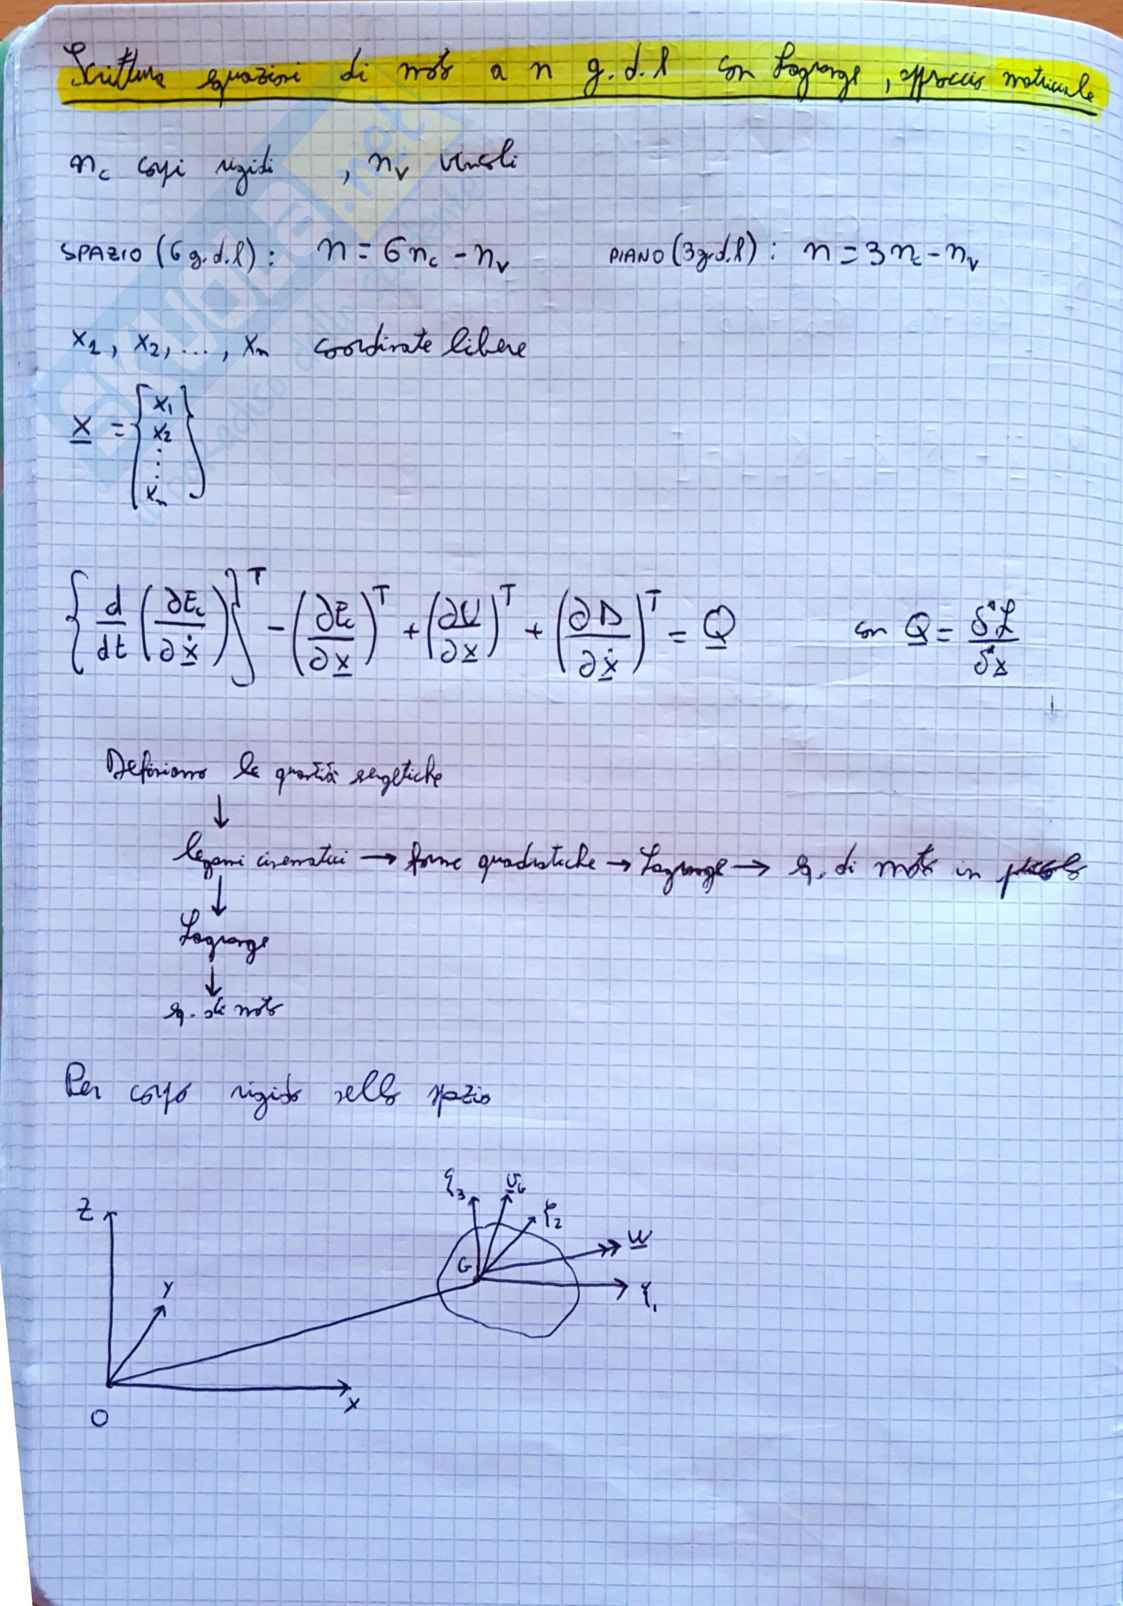 Scrittura equazioni di moto a n g.d.l con Lagrange, approccio matriciale
n_c corpi rigidi , n_v vincoli
SPAZIO (6 g.d.l): n = 6n_c - n_v PIANO (3g.d.l): n = 3n_c - n_v
x_1, x_2, ..., x_n coordinate libere
x = { x_1 x_2 ⋮ x_n }
{ d/dt ( ∂E_c/∂ẋ ) }^T - ( ∂E_c/∂x )^T + ( ∂U/∂x )^T + ( ∂D/∂ẋ )^T = Q con Q = δ*L/δ*x
Definiamo le quantità energetiche
↓
legami cinematici → forme quadratiche → Lagrange → eq. di moto in piccolo
↓
Lagrange
↓
eq. di moto
Per corpo rigido nello spazio
ξ_3 v_G ξ_2
Z
G ω
Y ξ_1
X
O